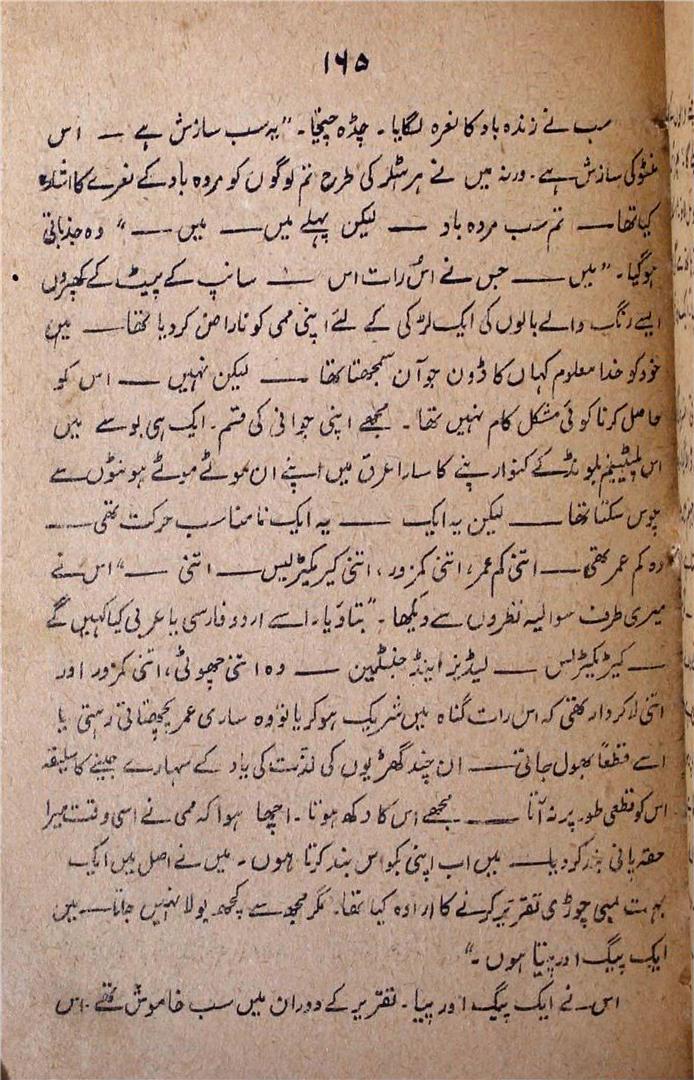 ۱۶۵
سب نے زندہ باد کا نعرہ لگایا۔ چڈہ چیخا۔ "یہ سب سازش ہے — اس
منٹو کی سازش ہے۔ ورنہ میں نے ہر ہٹلر کی طرح تم لوگوں کو مردہ باد کے نعرے کا اشارہ
کیا تھا — تم سب مردہ باد — لیکن پہلے میں — میں —" وہ جذباتی
ہو گیا۔ "میں — جس نے اُس رات اس — سانپ کے پیٹ کے کھپروں
ایسے رنگ والے بالوں کی ایک لڑکی کے لئے اپنی ممی کو ناراض کر دیا تھا — میں
خود کو خدا معلوم کہاں کا ڈون جوآن سمجھتا تھا — لیکن نہیں — اس کو
حاصل کرنا کوئی مشکل کام نہیں تھا۔ مجھے اپنی جوانی کی قسم۔ ایک ہی بوسے میں
اس پلیٹینم بلونڈ کے کنوارپنے کا سارا عرق میں اپنے ان موٹے موٹے ہونٹوں سے
چوس سکتا تھا — لیکن یہ ایک — یہ ایک نامناسب حرکت تھی —
وہ کم عمر تھی — اتنی کم عمر، اتنی کمزور، اتنی کیریکٹرلیس — اتنی —" اس نے
میری طرف سوالیہ نظروں سے دیکھا۔ "بتاؤ یار۔ اسے اردو فارسی یا عربی کیا کہیں گے
— کیریکٹرلس — لیڈیز اینڈ جنٹلمین — وہ اتنی چھوٹی، اتنی کمزور اور
اتنی لاکردار تھی کہ اس رات گناہ میں شریک ہو کر یا تو وہ ساری عمر پچھتاتی رہتی یا
اسے قطعاً بھول جاتی — ان چند گھڑیوں کی لذّت کی یاد کے سہارے جینے کا سلیقہ
اس کو قطعی طور پر نہ آتا — مجھے اس کا دکھ ہوتا۔ اچھا ہوا کہ ممی نے اسی وقت میرا
حقہ پانی بند کر دیا — میں اب اپنی بکواس بند کرتا ہوں۔ میں نے اصل میں ایک
بہت لمبی چوڑی تقریر کرنے کا ارادہ کیا تھا۔ مگر مجھ سے کچھ بولا نہیں جاتا — میں
ایک پیگ اور پیتا ہوں۔"
اس نے ایک پیگ اور پیا۔ تقریر کے دوران میں سب خاموش تھے۔ اس